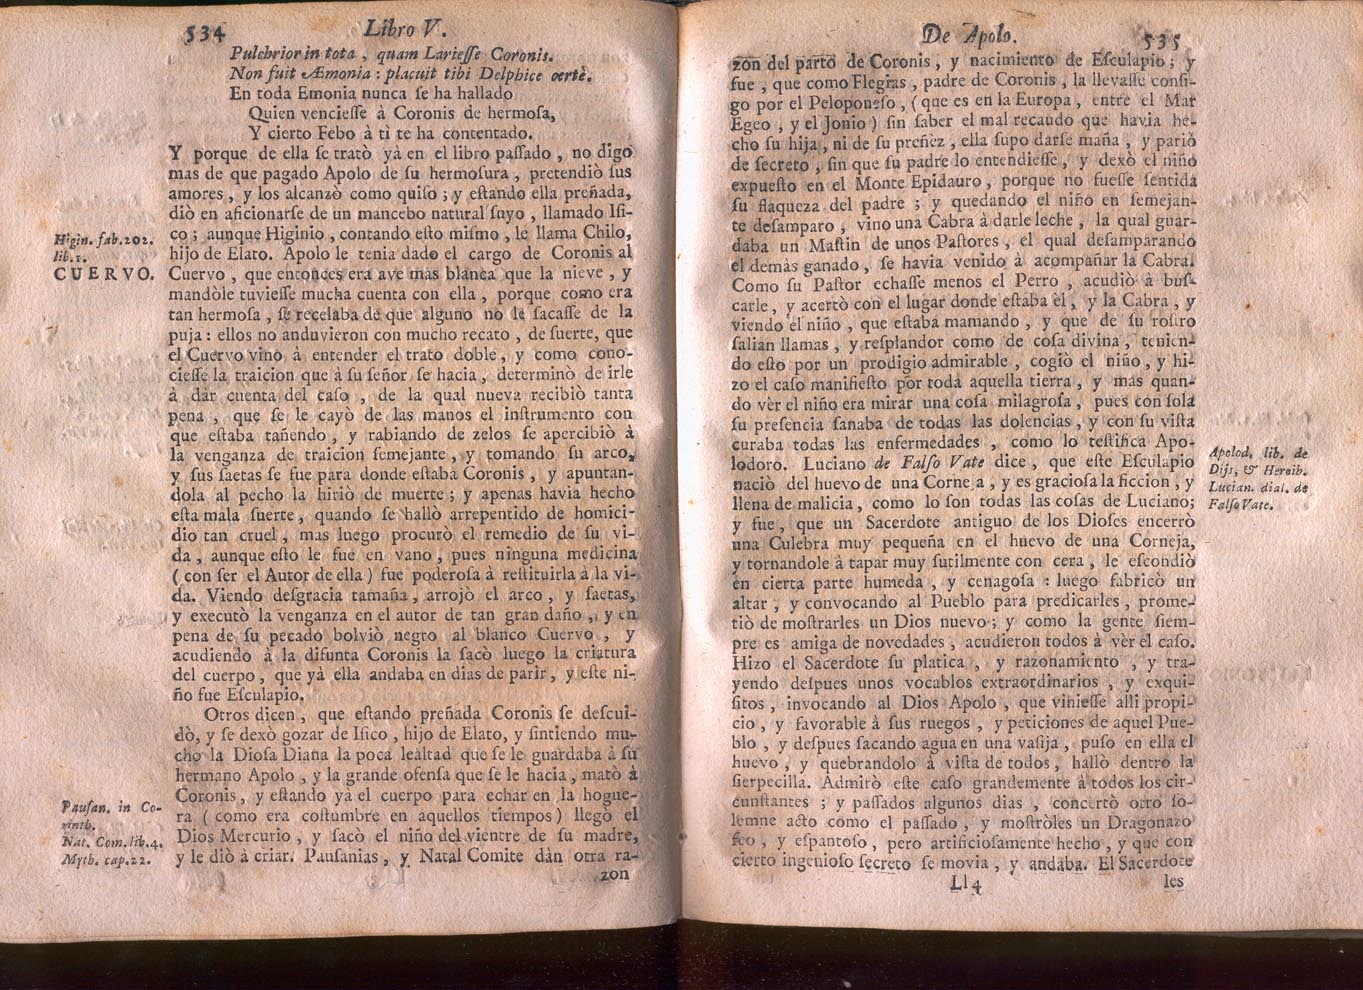 534
Libro V.
Pulchrior in tota, quam Lariesse Coronis.
Non fuit Æmonia: placuit tibi Delphice certè.
En toda Emonia nunca ſe ha hallado
Quien vencieſſe à Coronis de hermoſa,
Y cierto Febo à ti te ha contentado.
Y porque de ella ſe tratò yà en el libro paſſado, no digo
mas de que pagado Apolo de ſu hermoſura, pretendiò ſus
amores, y los alcanzò como quiſo; y eſtando ella preñada,
diò en aficionarſe de un mancebo natural ſuyo, llamado Iſi-
co; aunque Higinio, contando eſto miſmo, le llama Chilo,
hijo de Elato. Apolo le tenia dado el cargo de Coronis al
Cuervo, que entonces era ave mas blanca que la nieve, y
mandòle tuvieſſe mucha cuenta con ella, porque como era
tan hermoſa, ſe recelaba de que alguno no le ſacaſſe de la
puja: ellos no anduvieron con mucho recato, de ſuerte, que
el Cuervo vino à entender el trato doble, y como cono-
cieſſe la traicion que à ſu ſeñor ſe hacia, determinò de irle
à dar cuenta del caſo, de la qual nueva recibiò tanta
pena, que ſe le cayò de las manos el inſtrumento con
que eſtaba tañendo, y rabiando de zelos ſe apercibiò à
la venganza de traicion ſemejante, y tomando ſu arco,
y ſus ſaetas ſe fue para donde eſtaba Coronis, y apuntan-
dola al pecho la hiriò de muerte; y apenas havia hecho
eſta mala ſuerte, quando ſe hallò arrepentido de homici-
dio tan cruel, mas luego procurò el remedio de ſu vi-
da, aunque eſto le fue en vano, pues ninguna medicina
(con ſer el Autor de ella) fue poderoſa à reſtituirla à la vi-
da. Viendo deſgracia tamaña, arrojò el arco, y ſaetas,
y executò la venganza en el autor de tan gran daño, y en
pena de ſu pecado bolviò negro al blanco Cuervo, y
acudiendo à la difunta Coronis la ſacò luego la criatura
del cuerpo, que yà ella andaba en dias de parir, y eſte ni-
ño fue Eſculapio.
Otros dicen, que eſtando preñada Coronis ſe deſcui-
dò, y ſe dexò gozar de Iſico, hijo de Elato, y ſintiendo mu-
cho la Dioſa Diana la poca lealtad que ſe le guardaba à ſu
hermano Apolo, y la grande ofenſa que ſe le hacia, matò à
Coronis, y eſtando yà el cuerpo para echar en la hogue-
ra (como era coſtumbre en aquellos tiempos) llegò el
Dios Mercurio, y ſacò el niño del vientre de ſu madre,
y le diò à criar. Pauſanias, y Natal Comite dàn otra ra-
zon
Higin. fab. 202.
lib. 1.
CUERVO.
Pauſan. in Co-
rinth.
Nat. Com. lib. 4.
Myth. cap. 22.
De Apolo.
535
zon del parto de Coronis, y nacimiento de Eſculapio; y
fue, que como Flegias, padre de Coronis, la llevaſſe conſi-
go por el Peloponeſo, (que es en la Europa, entre el Mar
Egeo, y el Jonio) ſin ſaber el mal recaudo que havia he-
cho ſu hija, ni de ſu preñèz, ella ſupo darſe maña, y pariò
de ſecreto, ſin que ſu padre lo entendieſſe, y dexò el niño
expueſto en el Monte Epidauro, porque no fueſſe ſentida
ſu flaqueza del padre; y quedando el niño en ſemejan-
te deſamparo, vino una Cabra à darle leche, la qual guar-
daba un Maſtin de unos Paſtores, el qual deſamparando
el demàs ganado, ſe havia venido à acompañar la Cabra.
Como ſu Paſtor echaſſe menos el Perro, acudiò à buſ-
carle, y acertò con el lugar donde eſtaba èl, y la Cabra, y
viendo el niño, que eſtaba mamando, y que de ſu roſtro
ſalian llamas, y reſplandor como de coſa divina, tenien-
do eſto por un prodigio admirable, cogiò el niño, y hi-
zo el caſo manifieſto por toda aquella tierra, y mas quan-
do vèr el niño era mirar una coſa milagroſa, pues con ſola
ſu preſencia ſanaba de todas las dolencias, y con ſu viſta
curaba todas las enfermedades, como lo teſtifica Apo-
lodoro. Luciano de Falſo Vate dice, que eſte Eſculapio
naciò del huevo de una Corneja, y es gracioſa la ficcion, y
llena de malicia, como lo ſon todas las coſas de Luciano;
y fue, que un Sacerdote antiguo de los Dioſes encerrò
una Culebra muy pequeña en el huevo de una Corneja,
y tornandole à tapar muy ſutilmente con cera, le eſcondiò
en cierta parte humeda, y cenagoſa: luego fabricò un
altar, y convocando al Pueblo para predicarles, prome-
tiò de moſtrarles un Dios nuevo; y como la gente ſiem-
pre es amiga de novedades, acudieron todos à vèr el caſo.
Hizo el Sacerdote ſu platica, y razonamiento, y tra-
yendo deſpues unos vocablos extraordinarios, y exqui-
ſitos, invocando al Dios Apolo, que vinieſſe alli propi-
cio, y favorable à ſus ruegos, y peticiones de aquel Pue-
blo, y deſpues ſacando agua en una vaſija, puſo en ella el
huevo, y quebrandolo à viſta de todos, hallò dentro la
ſierpecilla. Admirò eſte caſo grandemente à todos los cir-
cunſtantes; y paſſados algunos dias, concertò otro ſo-
lemne acto como el paſſado, y moſtròles un Dragonazo
feo, y eſpantoſo, pero artificioſamente hecho, y que con
cierto ingenioſo ſecreto ſe movia, y andaba. El Sacerdote
Ll 4
les
Apolod. lib. de
Dijs, & Heroib.
Lucian. dial. de
Falſo Vate.